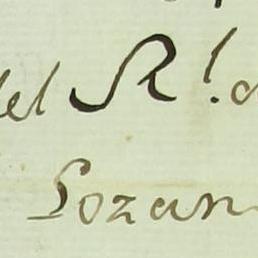 del Rl. d
Lozan